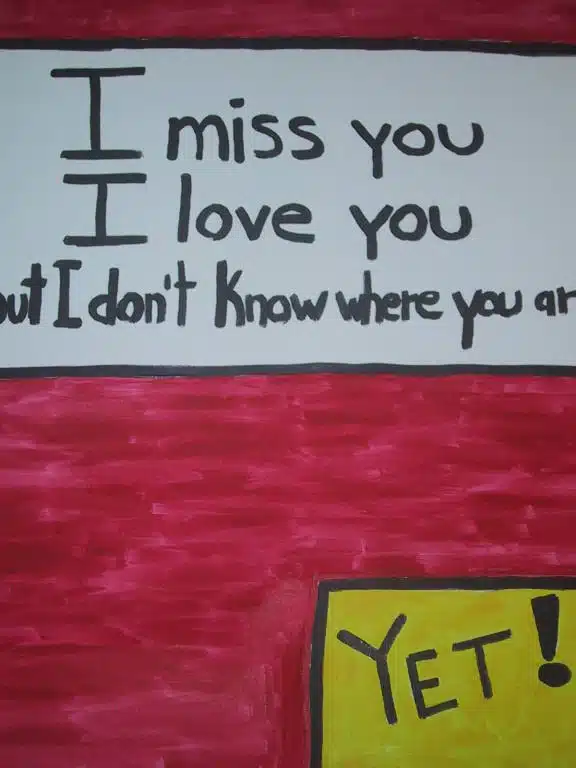 I miss you
I love you
but I don't know where you ar
YET!